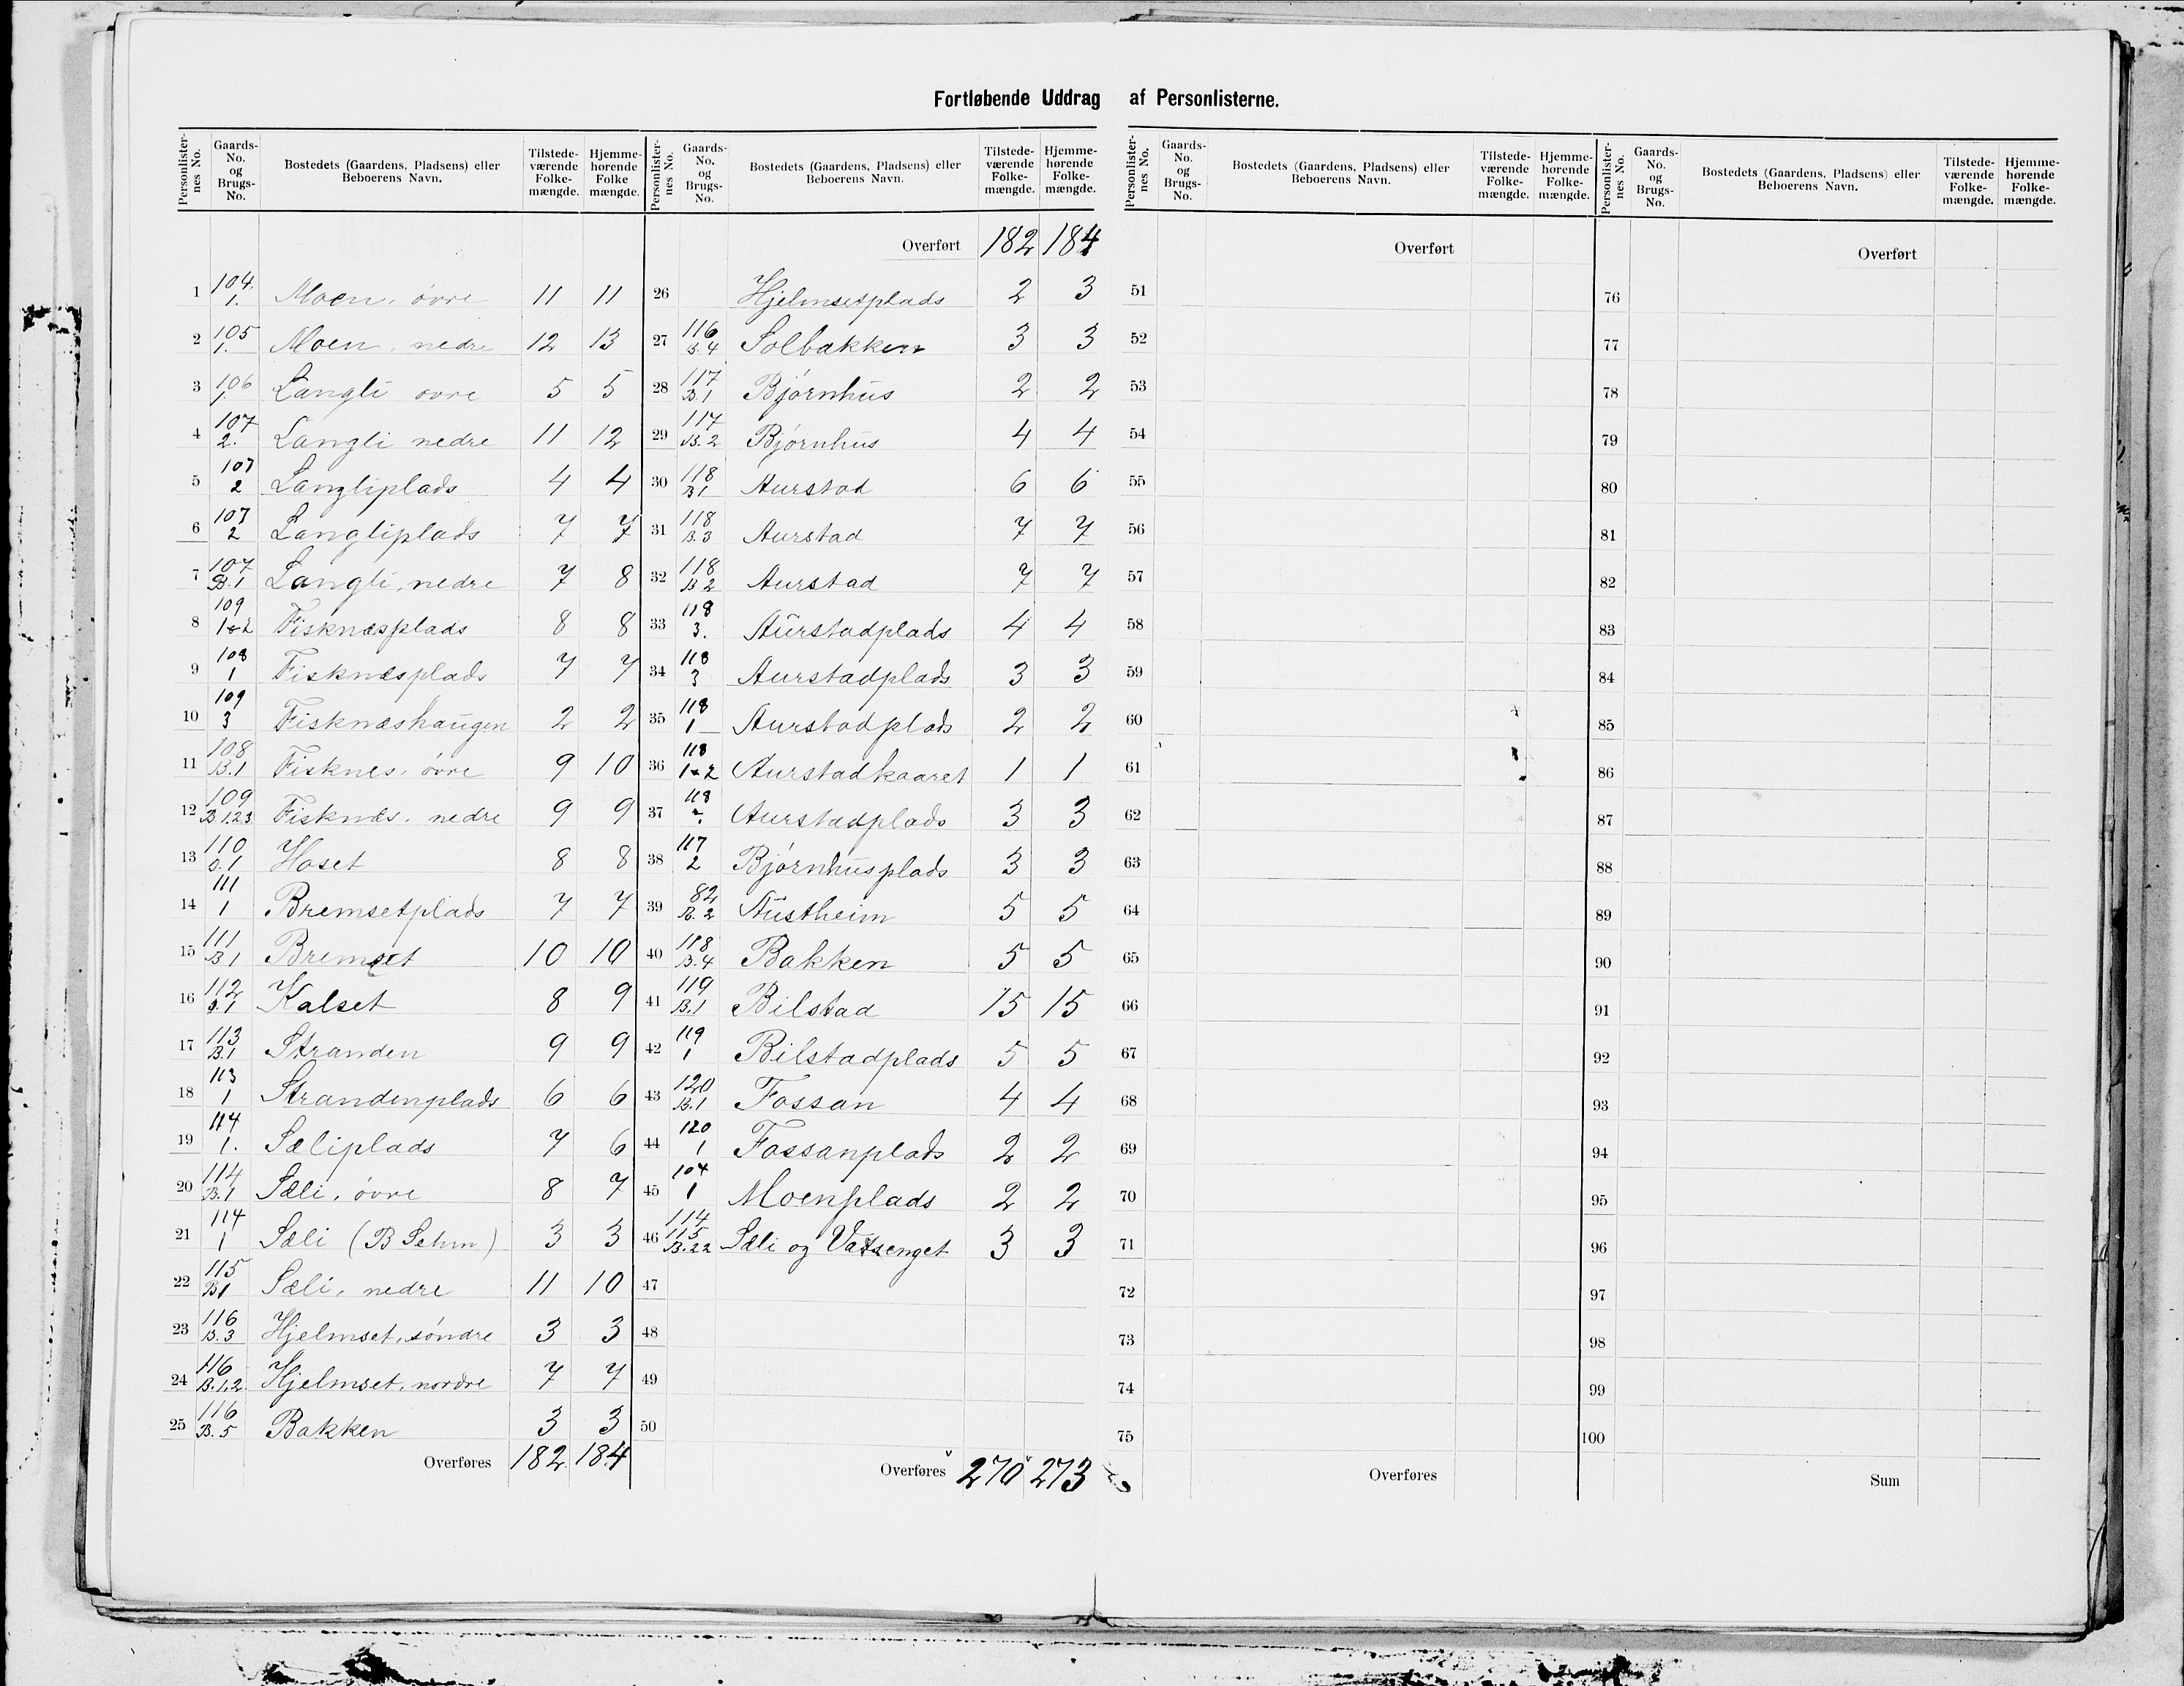 Fortløbende Uddrag af Personlisterne.
Personlisternes No. Gaards-No. og Brugs-No. Bostedets (Gaardens, Pladsens) eller Beboerens Navn. Tilstedeværende Folkemængde. Hjemmehørende Folkemængde.
1 104. 1. Moen, øvre 11 11
2 105 1. Moen, nedre 12 13
3 106 1. Langli øvre 5 5
4 107 2. Langli nedre 11 12
5 107 2 Langliplads 4 4
6 107 2 Langliplads 7 7
7 107 B.1 Langli, nedre 7 8
8 109 1&2 Fisknæsplads 8 8
9 108 1 Fisknæsplads 7 7
10 109 3 Fisknæshaugen 2 2
11 108 B.1 Fisknes, øvre 9 10
12 109 B.1.2.3 Fisknæs, nedre 9 9
13 110 1 Hoset 8 8
14 111 1 Bremsetplads 7 7
15 111 B1 Bremset 10 10
16 112 1 Kalset 8 9
17 113 B.1 Stranden 9 9
18 113 1 Strandenplads 6 6
19 114 1. Sæliplads 7 6
20 114 B.1 Sæli, øvre 8 7
21 114 1 Sæli (B Sehm) 3 3
22 115 B1 Sæli, nedre 11 10
23 116 B.3 Hjelmset, søndre 3 3
24 116 B.1,2. Hjelmset, nordre 7 7
25 116 B. 5 Bakken 3 3
Overføres 182 184
Personlisternes No. Gaards-No. og Brugs-No. Bostedets (Gaardens, Pladsens) eller Beboerens Navn. Tilstedeværende Folkemængde. Hjemmehørende Folkemængde.
Overført 182 184
26 Hjelmsetplads 2 3
27 116 B.4 Solbakken 3 3
28 117 B.1 Bjørnhus 2 2
29 117 B.2 Bjørnhus 4 4
30 118 B1 Aurstad 6 6
31 118 B.3 Aurstad 7 7
32 118 B2 Aurstad 7 7
33 118 3. Aurstadplads 4 4
34 118 3 Aurstadplads 3 3
35 118 1 Aurstadplads 2 2
36 118 1&2 Aurstadkaaret 1 1
37 118 Aurstadplads 3 3
38 117 2 Bjørnhusplads 3 3
39 82 B.2 Austheim 5 5
40 118 B.4 Bakken 5 5
41 119 B.1 Bilstad 15 15
42 119 1 Bilstadplads 5 5
43 120 B.1 Fossan 4 4
44 120 1 Fossanplads 2 2
45 104 1 Moenplads 2 2
46 114 115 B.22 Sæli og Vatsenget 3 3
47
48
49
50
Overføres 270 273
Personlisternes No. Gaards-No. og Brugs-No. Bostedets (Gaardens, Pladsens) eller Beboerens Navn. Tilstedeværende Folkemængde. Hjemmehørende Folkemængde.
Overført
51
52
53
54
55
56
57
58
59
60
61
62
63
64
65
66
67
68
69
70
71
72
73
74
75
Overføres
Personlisternes No. Gaards-No. og Brugs-No. Bostedets (Gaardens, Pladsens) eller Beboerens Navn. Tilstedeværende Folkemængde. Hjemmehørende Folkemængde.
Overført
76
77
78
79
80
81
82
83
84
85
86
87
88
89
90
91
92
93
94
95
96
97
98
99
100
Sum